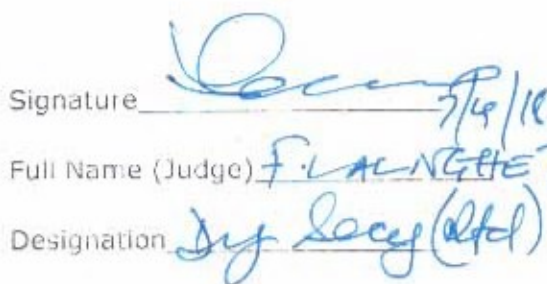 Signature 7/4/18
Full Name (Judge) F. LALNGHETA
Designation Dy Secy (Rtd)